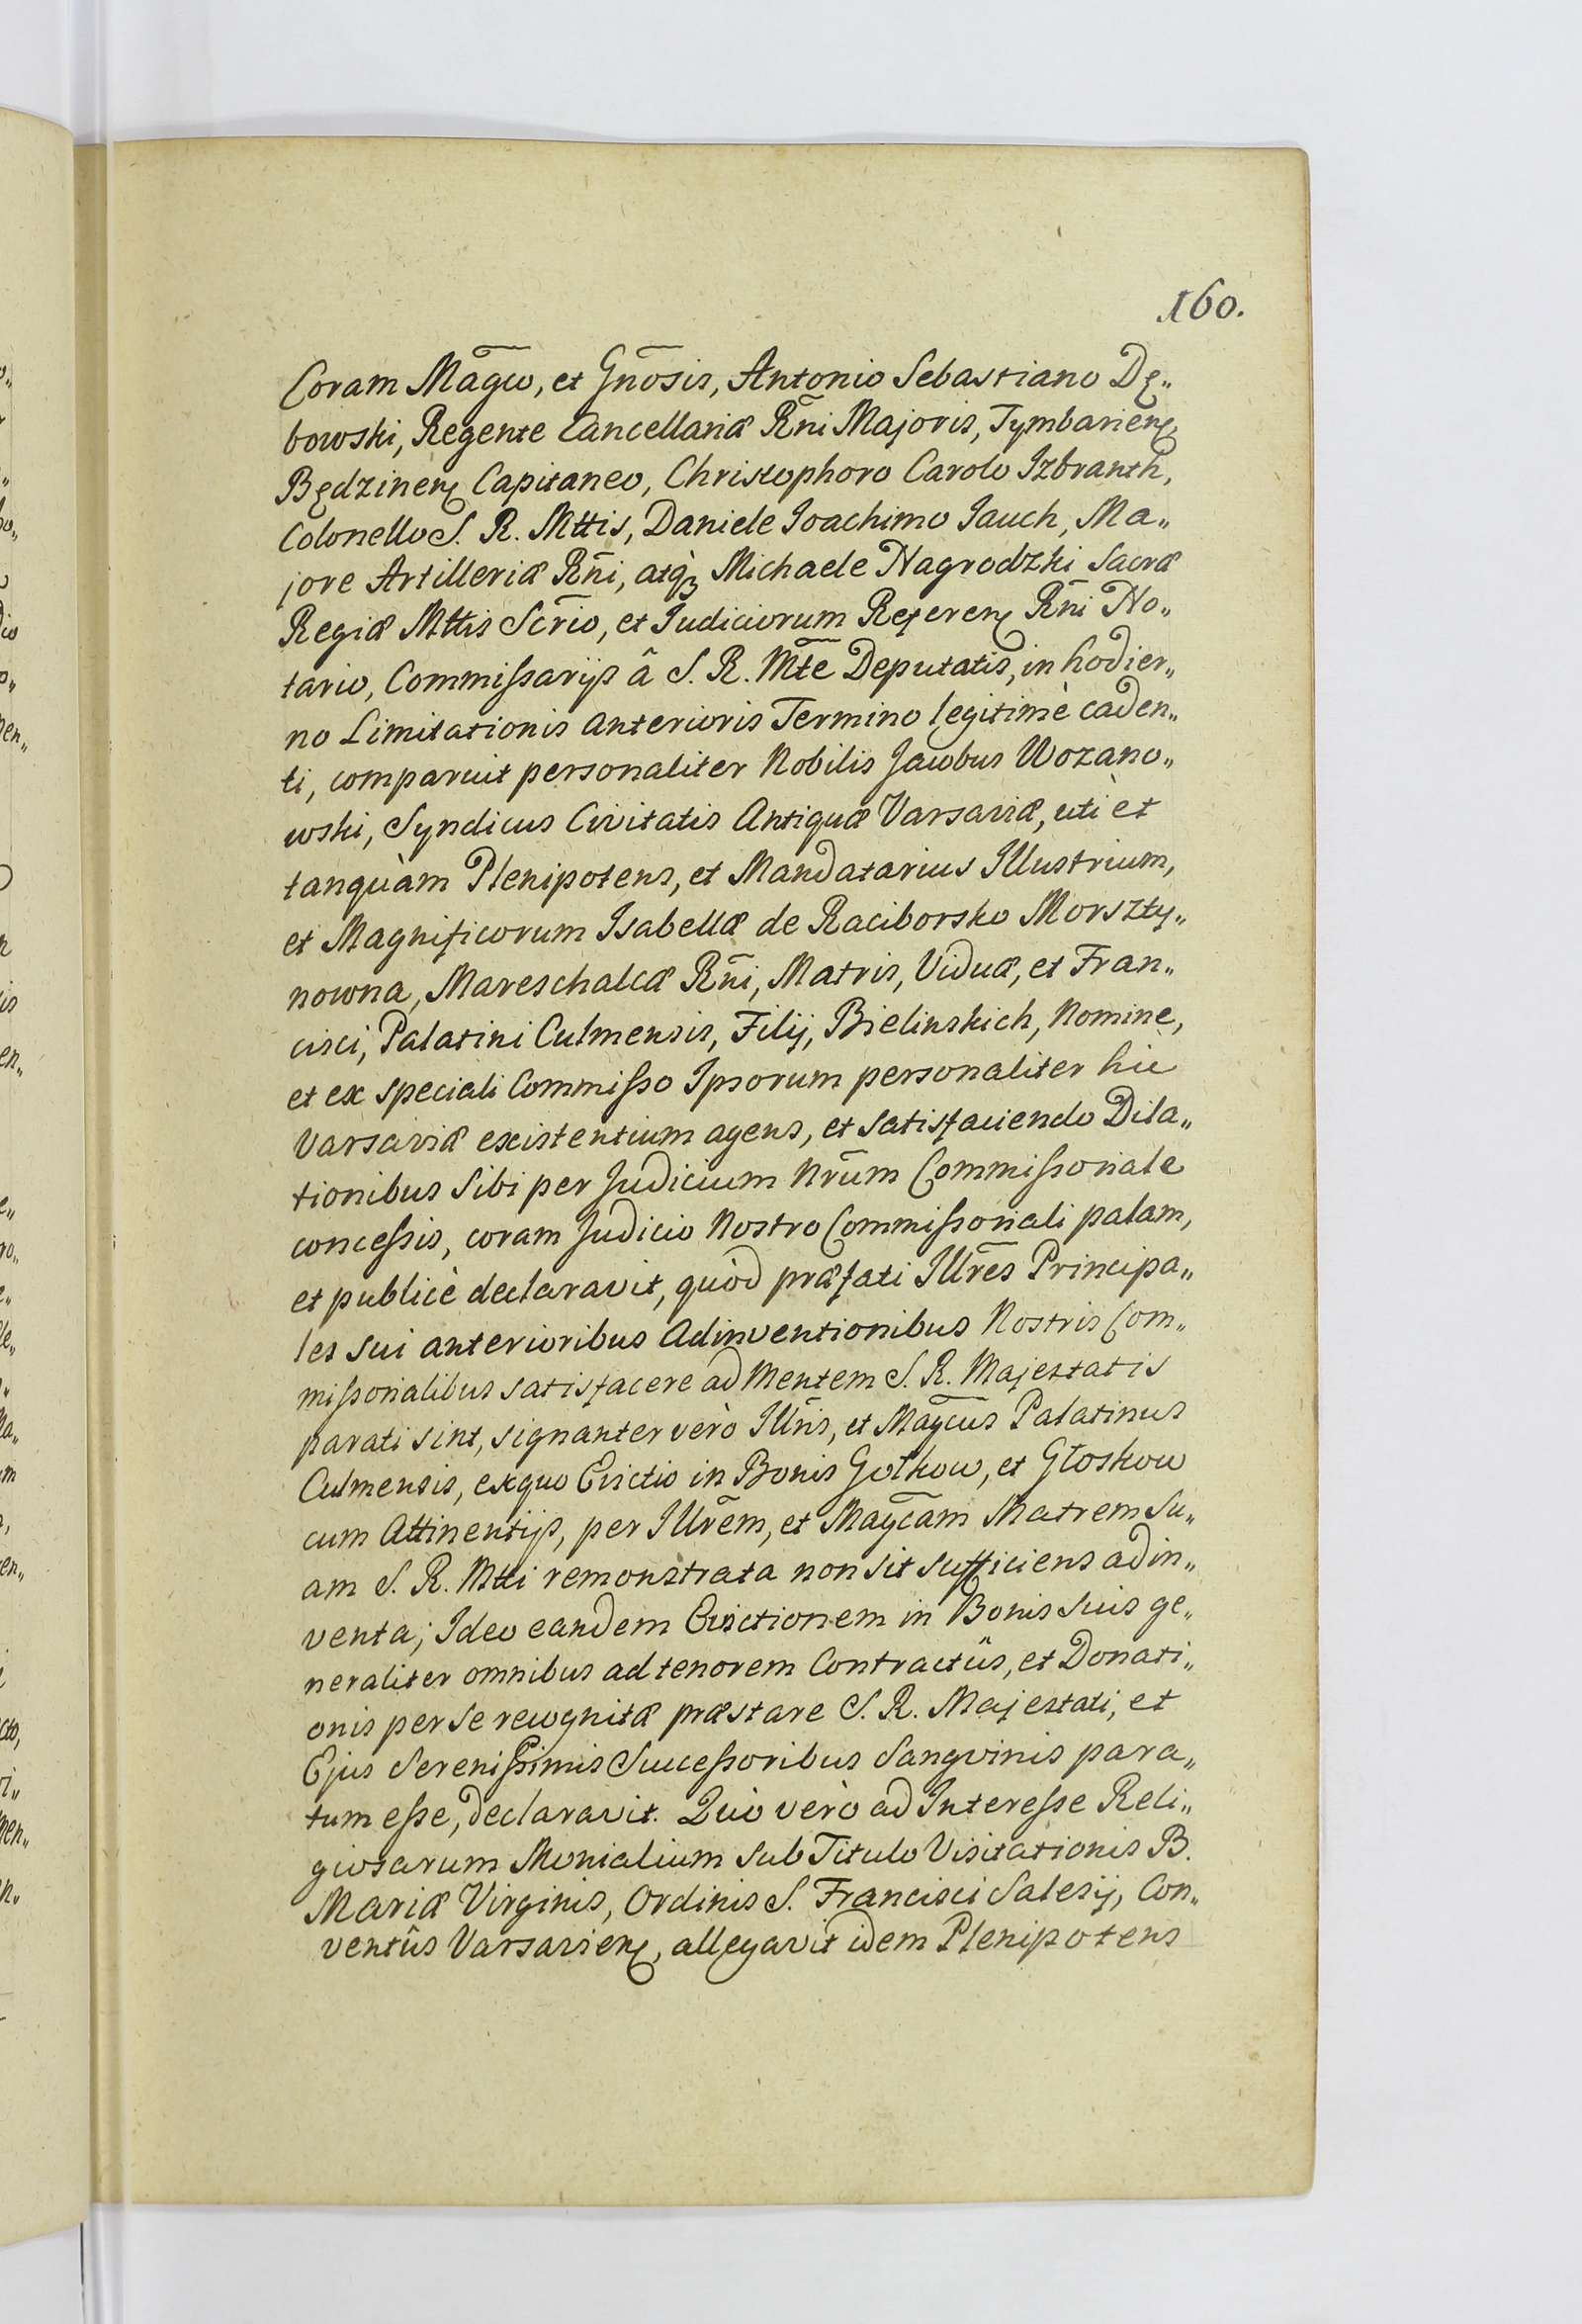 160.
Coram Mãgco, et Gnõsis, Antonio Sebastiano Dę„
bowski, Regente Cancellariæ Rñi Majoris, Tymbarien̄
Będzinen̄ Capitaneo, Christophoro Carolo Izbranth,
Colonello S. R. Mttis, Daniele Joachimo Jauch, Ma„
jore Artilleriæ Rñi, atq̀ꝫ Michaele Nagrodzki Sacræ
Regiæ Mttis Scrĩo, et Judiciorum Referen̄ Rñi No„
tario, Commißarijs â S. R. Mtẽ Deputatis, in hodier„
no Limitationis anterioris Termino legitimè caden„
ti, comparuit personaliter Nobilis Jacobus Wozano„
wski, Syndicus Civitatis Antiquæ Varsaviæ, uti èt
tanquàm Plenipotens, et Mandatarius Illustrium,
et Magnificorum Isabellæ de Raciborsko Morszty„
nowna, Mareschalcæ Rñi, Matris, Viduæ, et Fran„
cisci, Palatini Culmensis, Filij, Bielinskich, Nomine,
et ex speciali Commißo Ipsorum personaliter hic
Varsaviæ existentium agens, et satisfaciendo Dila„
tionibus sibi per Judicium Nrũm Commißoriale
conceßis, coram Judicio Nostro Commißoriali palam,
et publicè declaravit, quòd præfati Illrẽs Principa„
les sui anterioribus Adinventionibus Nostris Com„
mißorialibus satisfacere ad Mentem S. R. Majestatis
parati sint, signanter verò Illrĩs, et Mag̃cus Palatinus
Culmensis, exquo Evictio in Bonis Gołkow, et Głoskow
cum Attinentijs, per Illrẽm, et Mag̃cam Matrem su„
am S. R. Mtti remonstrata non sit sufficiens adin„
venta; Ideo eandem Evictionem in Bonis suis ge„
neraliter omnibus ad tenorem Contractûs, et Donati„
onis per se recognitæ præstare S. R. Majestati, et
Ejus Serenißimis Succeßoribus Sangvinis para„
tum eße, declaravit. Quò verò ad Intereße Reli„
giosarum Monialium sub Titulo Visitationis B.
Mariæ Virginis, Ordinis S. Francisci Salesij, Con„
ventûs Varsavien̄, allegavit idem Plenipotens